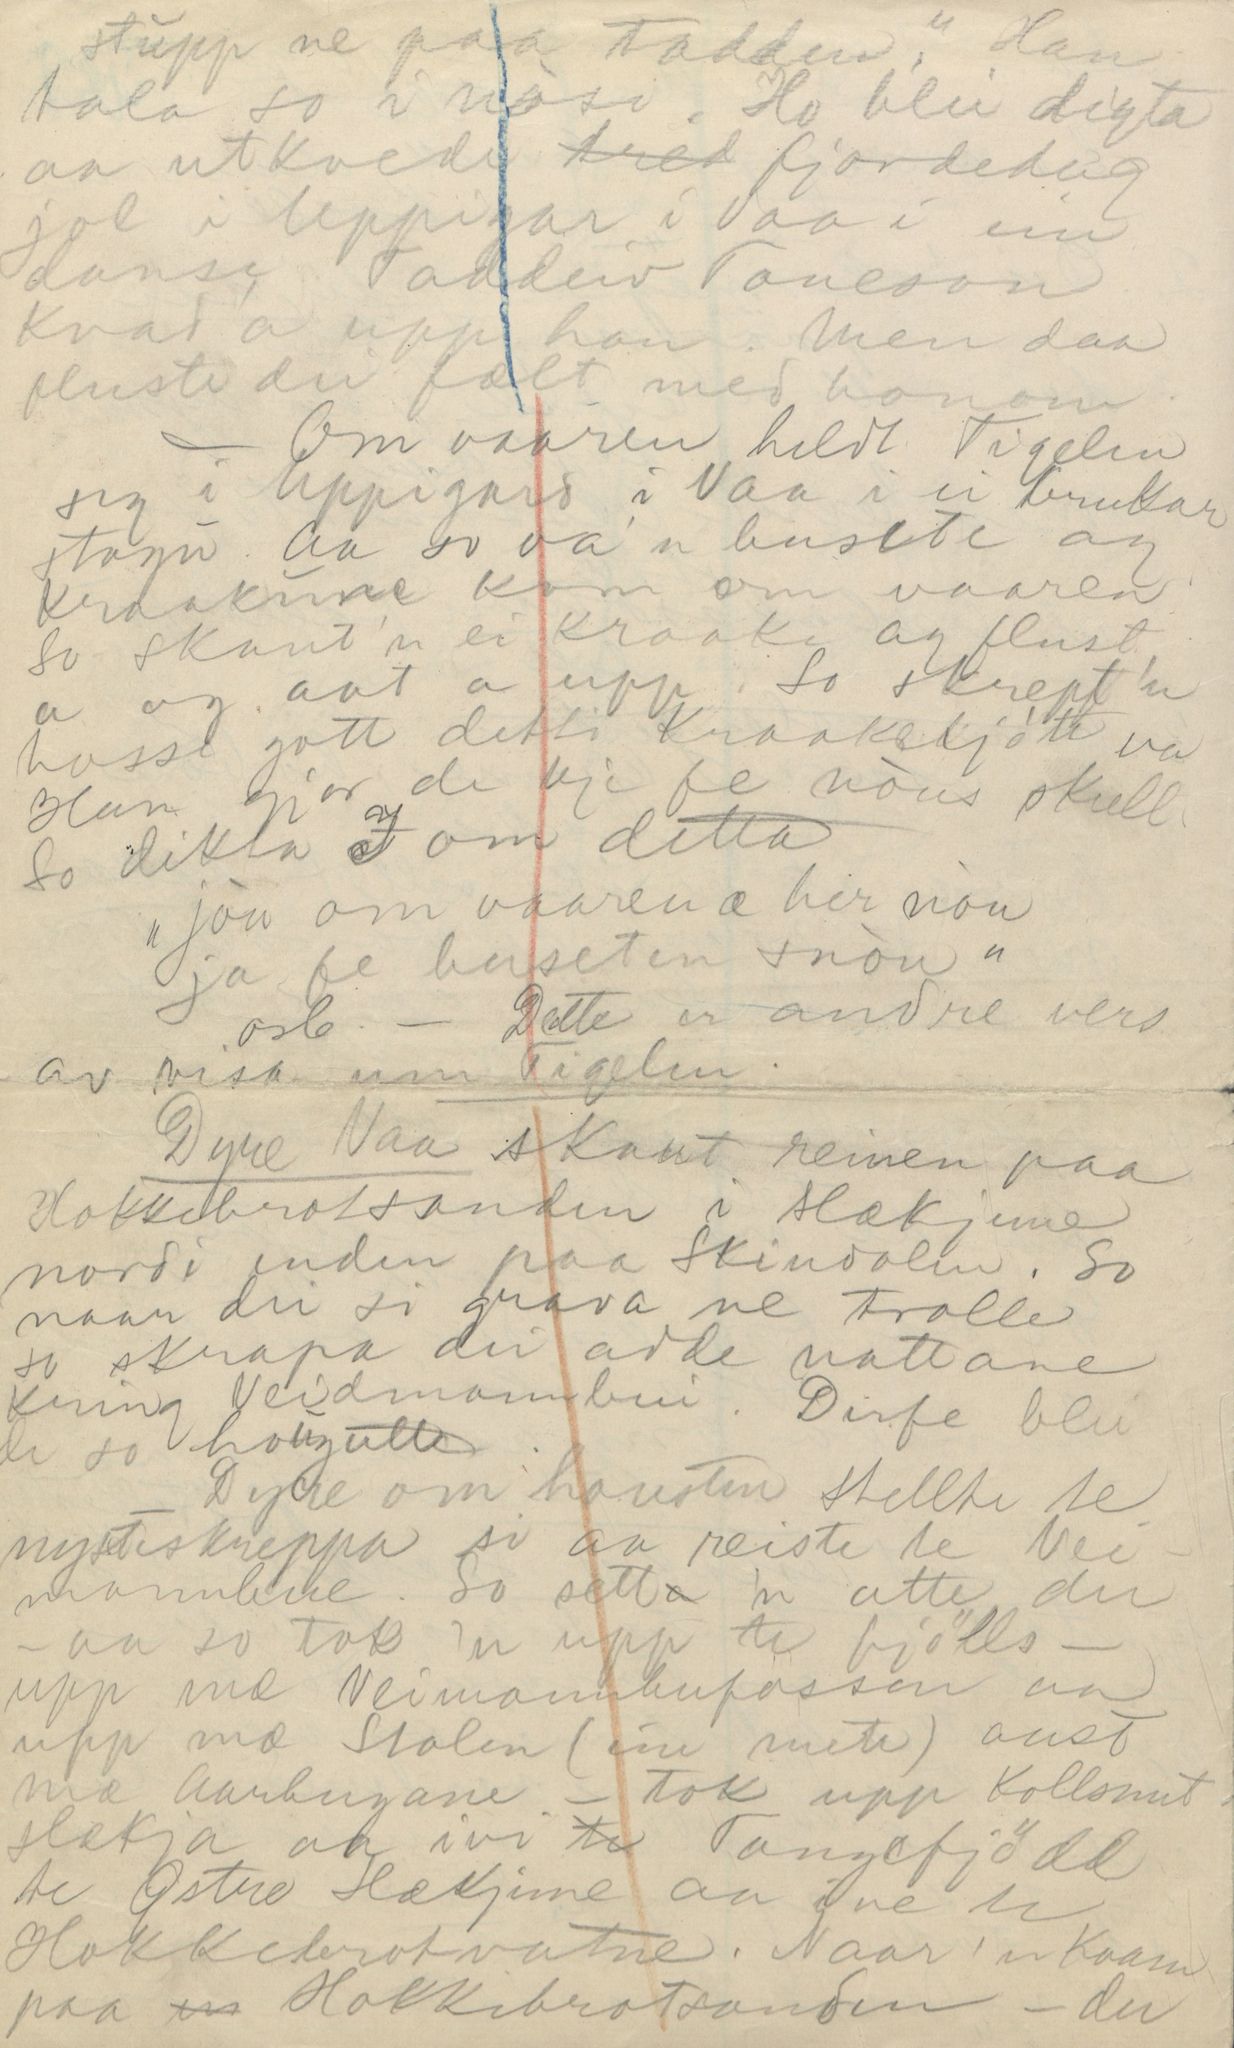 stupp ne paa Tadden." Han
tala so i nòsi. Ho blei digta
aa utkvedi tred fjordedag
jol i Uppigar i Vaa i ein
dans. Taddeiv Toneson
kvad a upp han. Men daa
pluste dei fælt med honom.
— Om vaaren heldt Tigelen
seg i Uppigard i Vaa i ei brukar
stogu. Aa so va 'n busette ag
kraakune kom om vaaren
So skaut 'n ei kraake ag flust
a og aat a upp. So skrept 'n
hosse gott detti kraakekjøtte va
Han gjor de kje fe nòns skull.
So dikta om ditta
"jòu om vaaren æ her nòu
ja fe buseten snòu"
osb. — Dette er andre vers
av visa um Tigelen.
Dyre Vaa skaut reinen paa
Hokkebrotsanden i Slækjune
nordi enden paa Skindalen. So
naar dei si grava ne trolle
so skrapa dei adde nattane
kring Veidmannbui. Dirfe blei
de so haugutte.
— Dyre om hausten stellte te
nysteskreppa si aa reiste te Vei-
mannbue. So setta 'n atte der
- aa so tok 'n upp te fjölls —
upp mæ Veimannbufossen aa
upp mæ Stolen (ine mete) aust
mæ Aarbugane — tok upp Kollsnut
slækja aa ivi te Tangefjödd
te Østre Slækjune aa ive te
Hokkebrotvatne. Naar 'n kaam
paa en Hokkebrotsanden — der